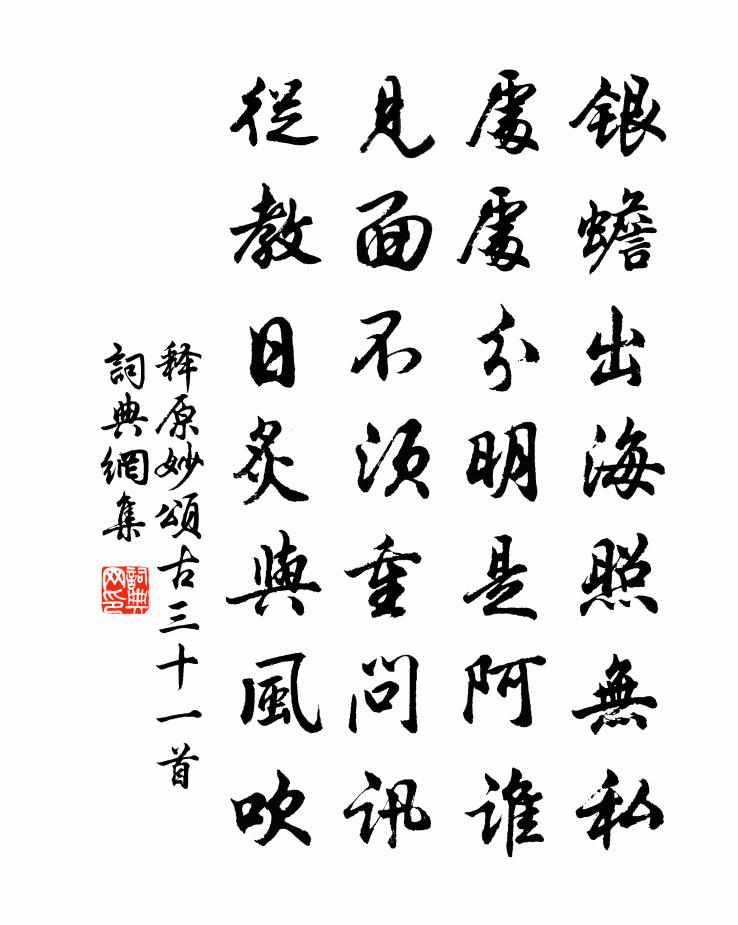 銀蟾出海照無私
處處分明是阿誰
見面不須重問訊
從教日炙與風吹
释原妙頌古三十一首
詞典網集
詞典網印